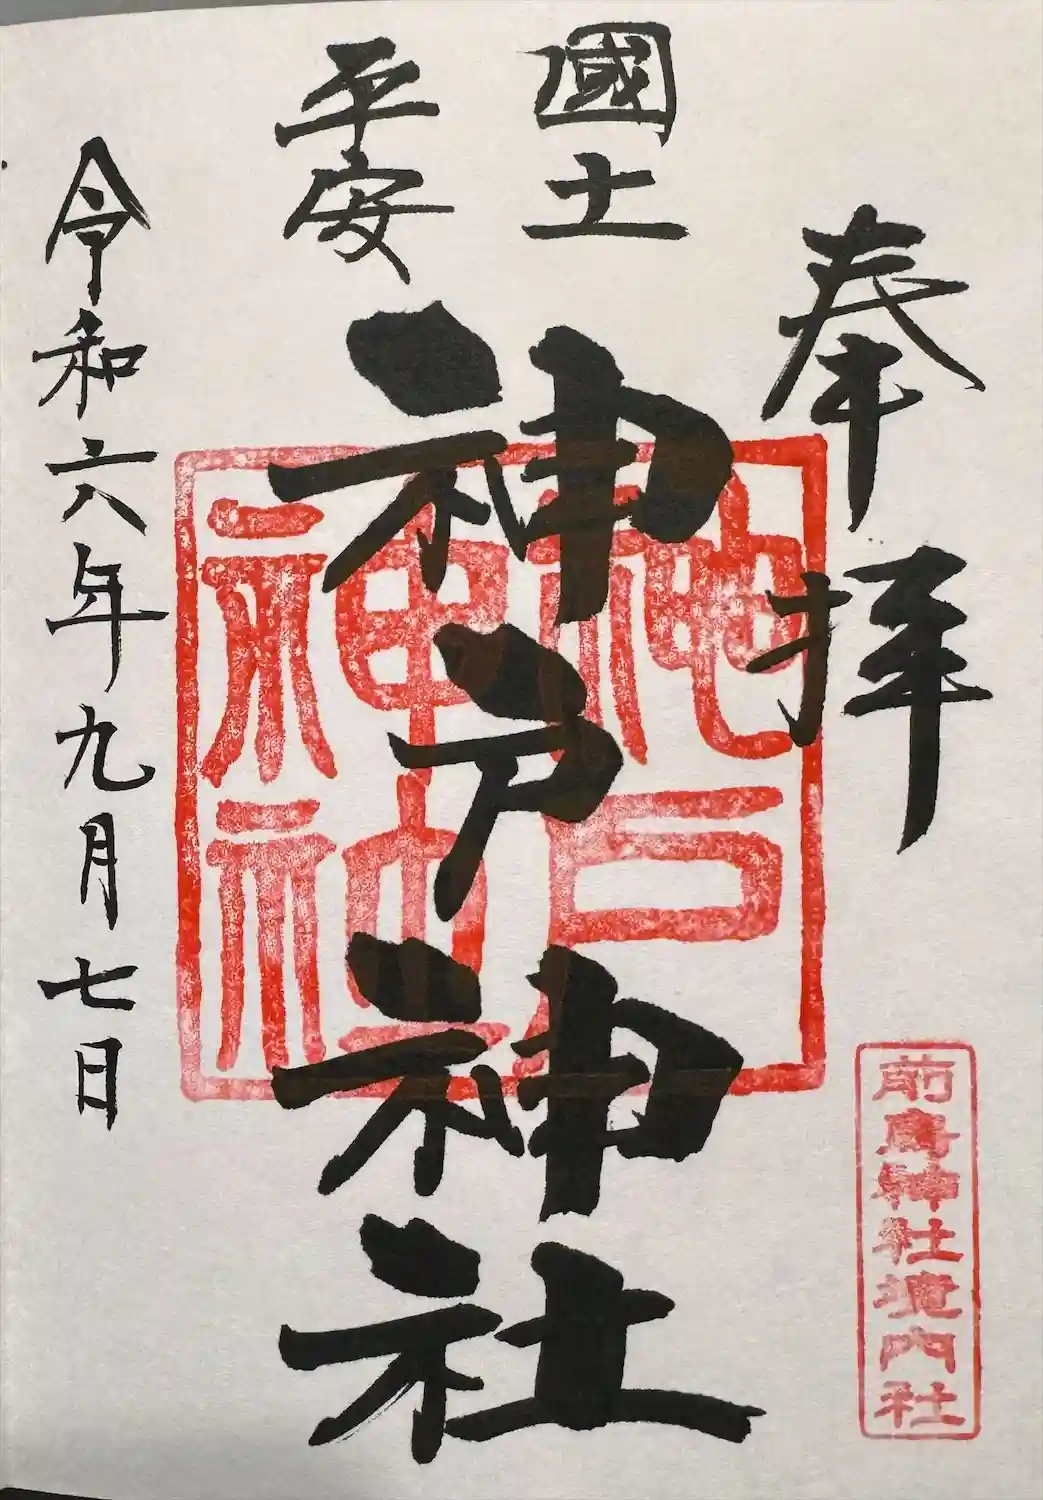 奉拝
國土
平安
神戸神社
令和六年九月七日
前鳥神社境内社